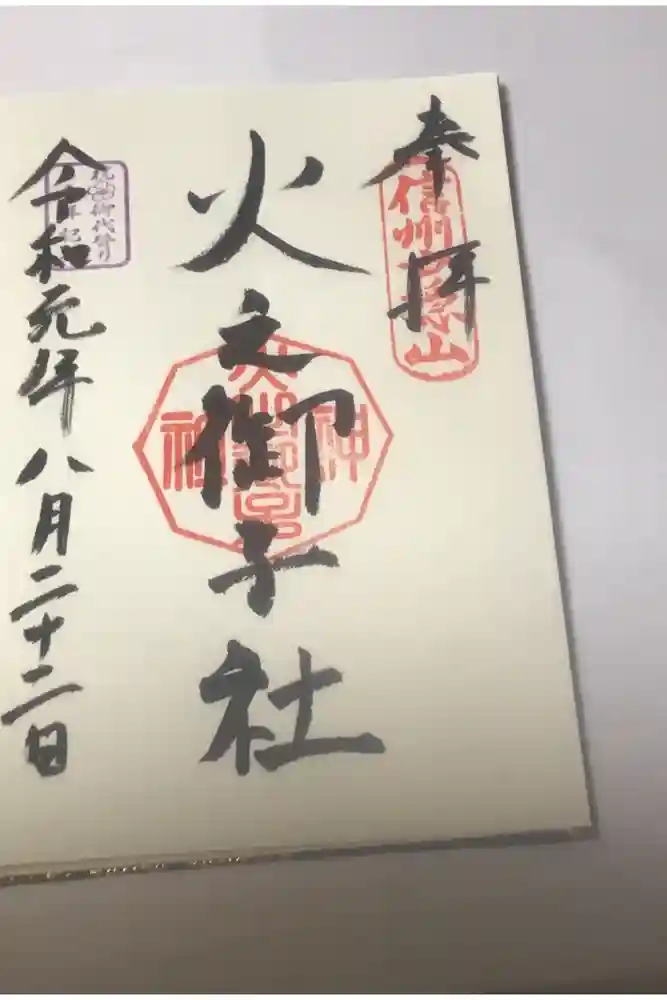 奉拝
信州戸隠山
火之御子社
神
令和元年八月二十二日